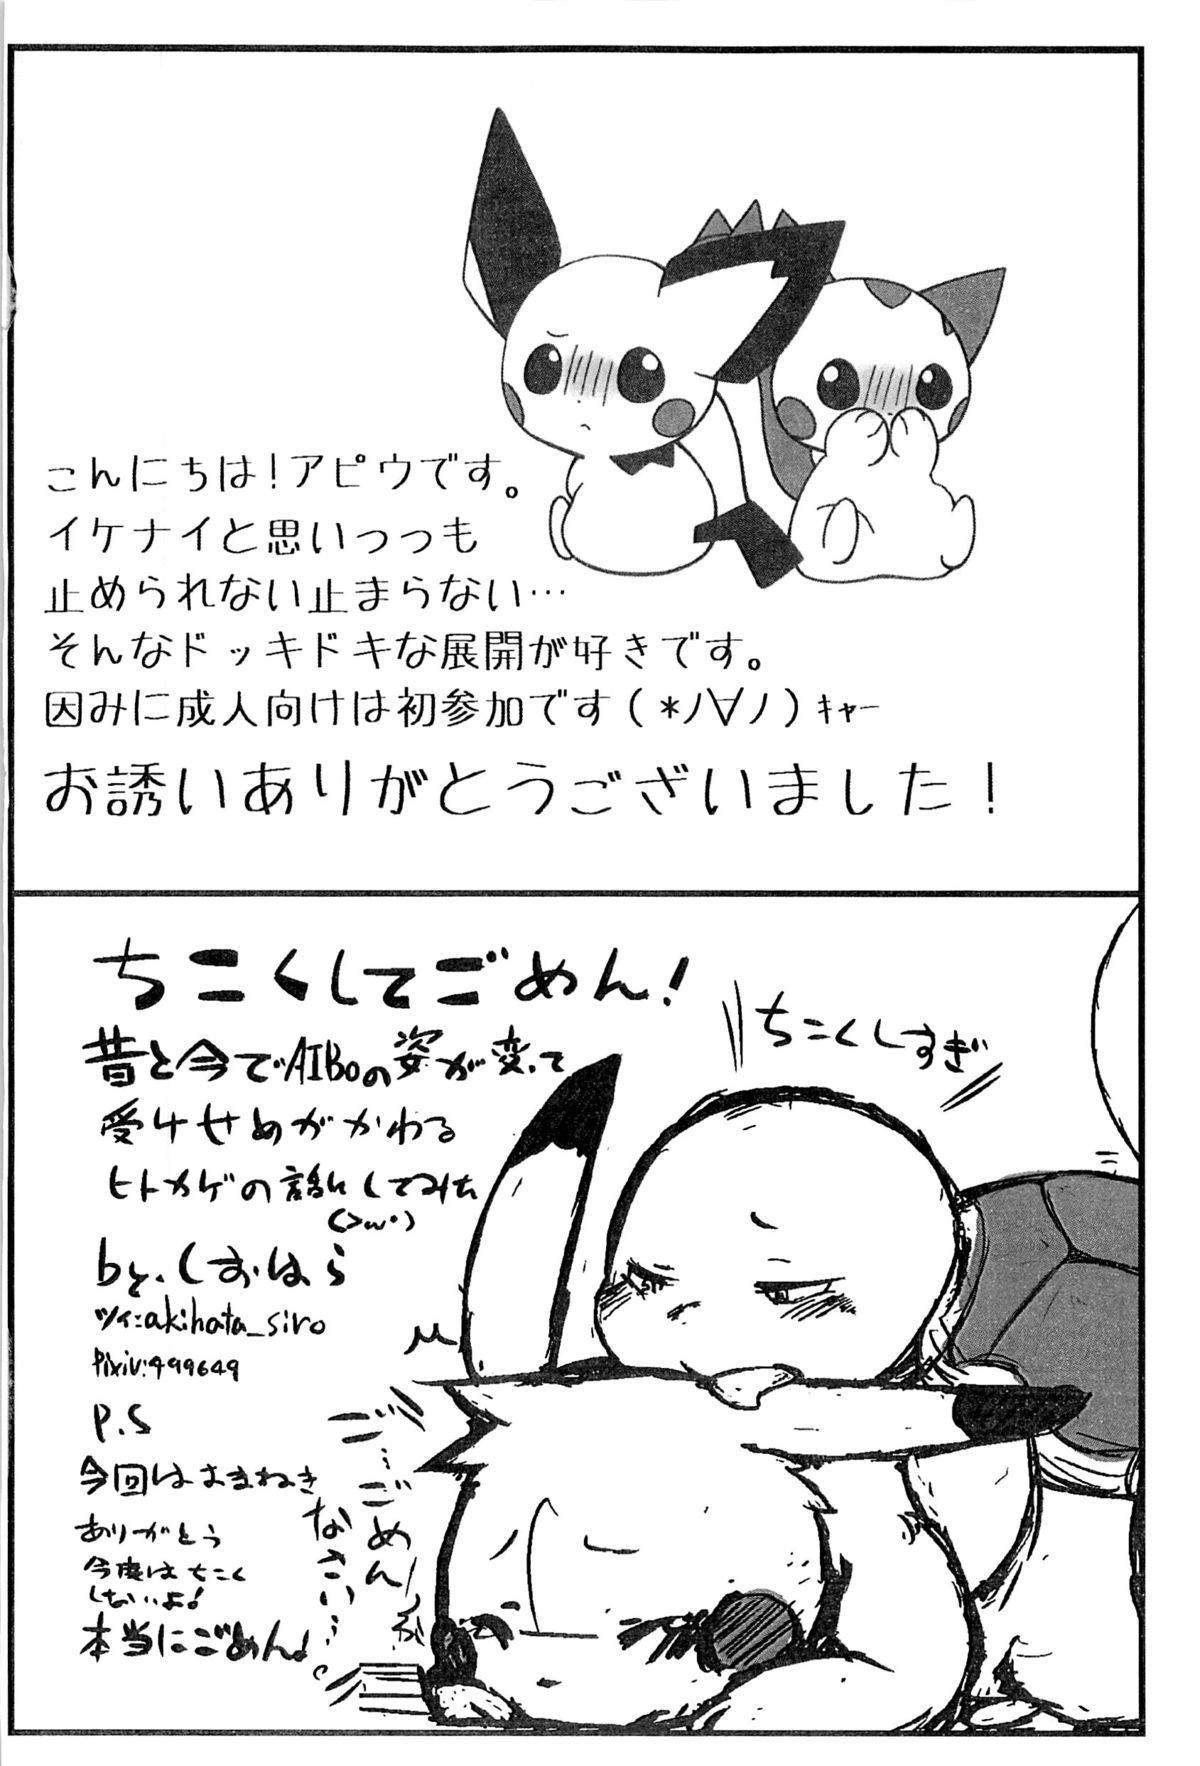 こんにちは！アピウです。
イケナイと思いっっも
止められない止まらない…
そんなドッキドキな展開が好きです。
因みに成人向けは初参加です（*ノ∀ノ）ｷｬｰ
お誘いありがとうございました！
ちこくしてごめん！
昔と今でAIBoの姿が変って
受けせめがかわる
ヒトカゲの話にしてみた
(>ω・)
by.しおはら
ツイ:akihata_siro
Pixiv:499649
P.S
今回はおまねき
ありがとう
今度はちこく
しないよ！
本当にごめん！
ちこくしすぎ
ご…ごめん
なさい…